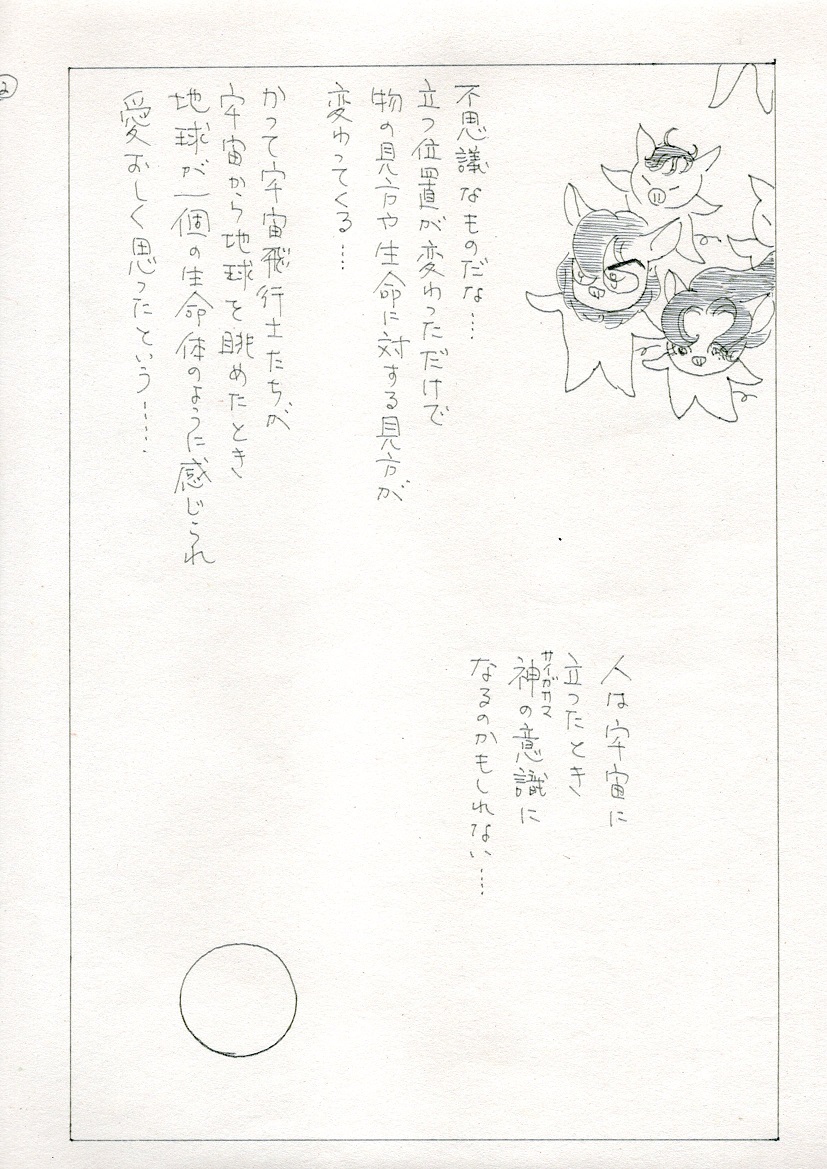 不思議なものだな…
立つ位置が変わっただけで
物の見方や生命に対する見方が
変わってくる…
かつて宇宙飛行士たちが
宇宙から地球を眺めたとき
地球が一個の生命体のように感じられ
愛おしく思ったという……
人は宇宙に
立ったとき
サイガガマ
神の意識に
なるのかもしれない…